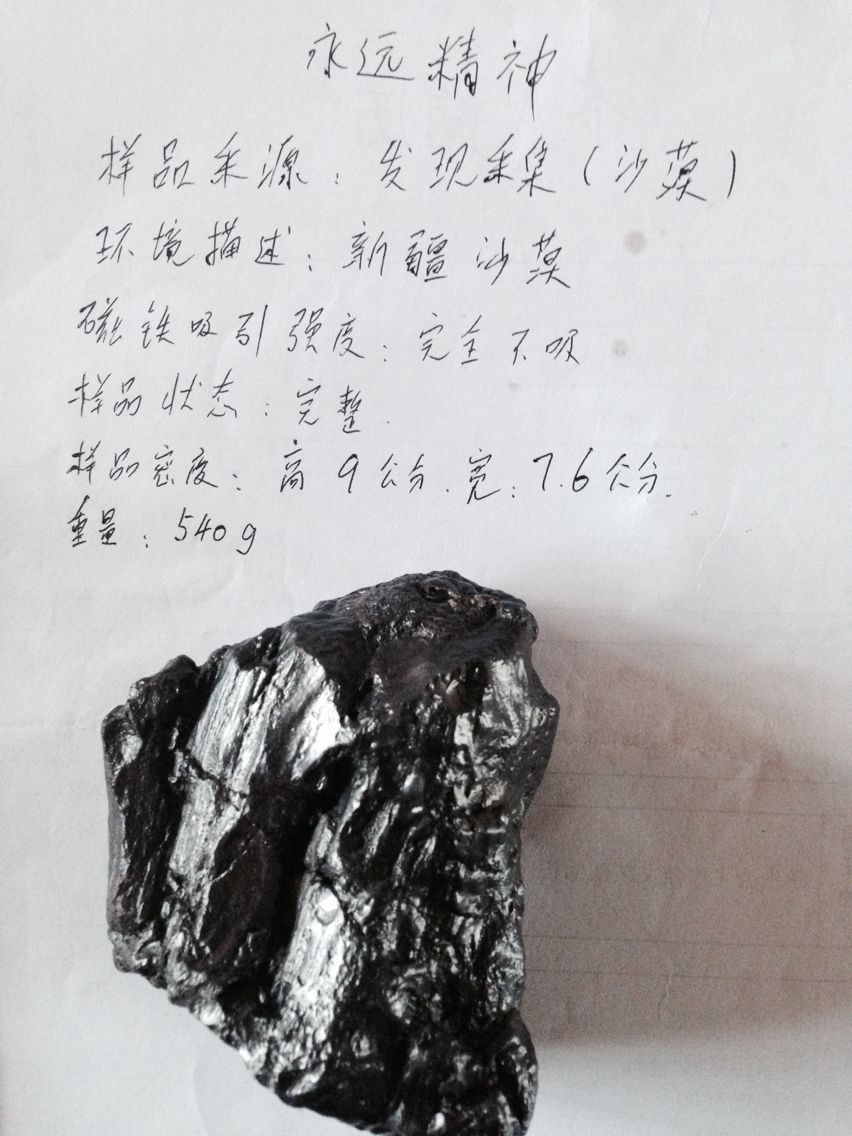 永远精神
样品来源：发现采集（沙漠）
环境描述：新疆沙漠
磁铁吸引强度：完全不吸
样品状态：完整.
样品密度：高9公分.宽：7.6公分.
重量：540g